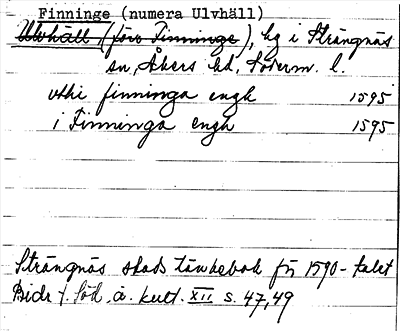 Finninge (numera Ulvhäll)
Ulvhäll (förr Finninge), hg i Strängnäs
sn, Åkers hd, Söderm. l.
vthi finninga engh 1595
i Finninga engh 1595
Strängnäs stads tänkebok för 1590-talet
Bidr t. Söd. ä. kult. XII s. 47, 49